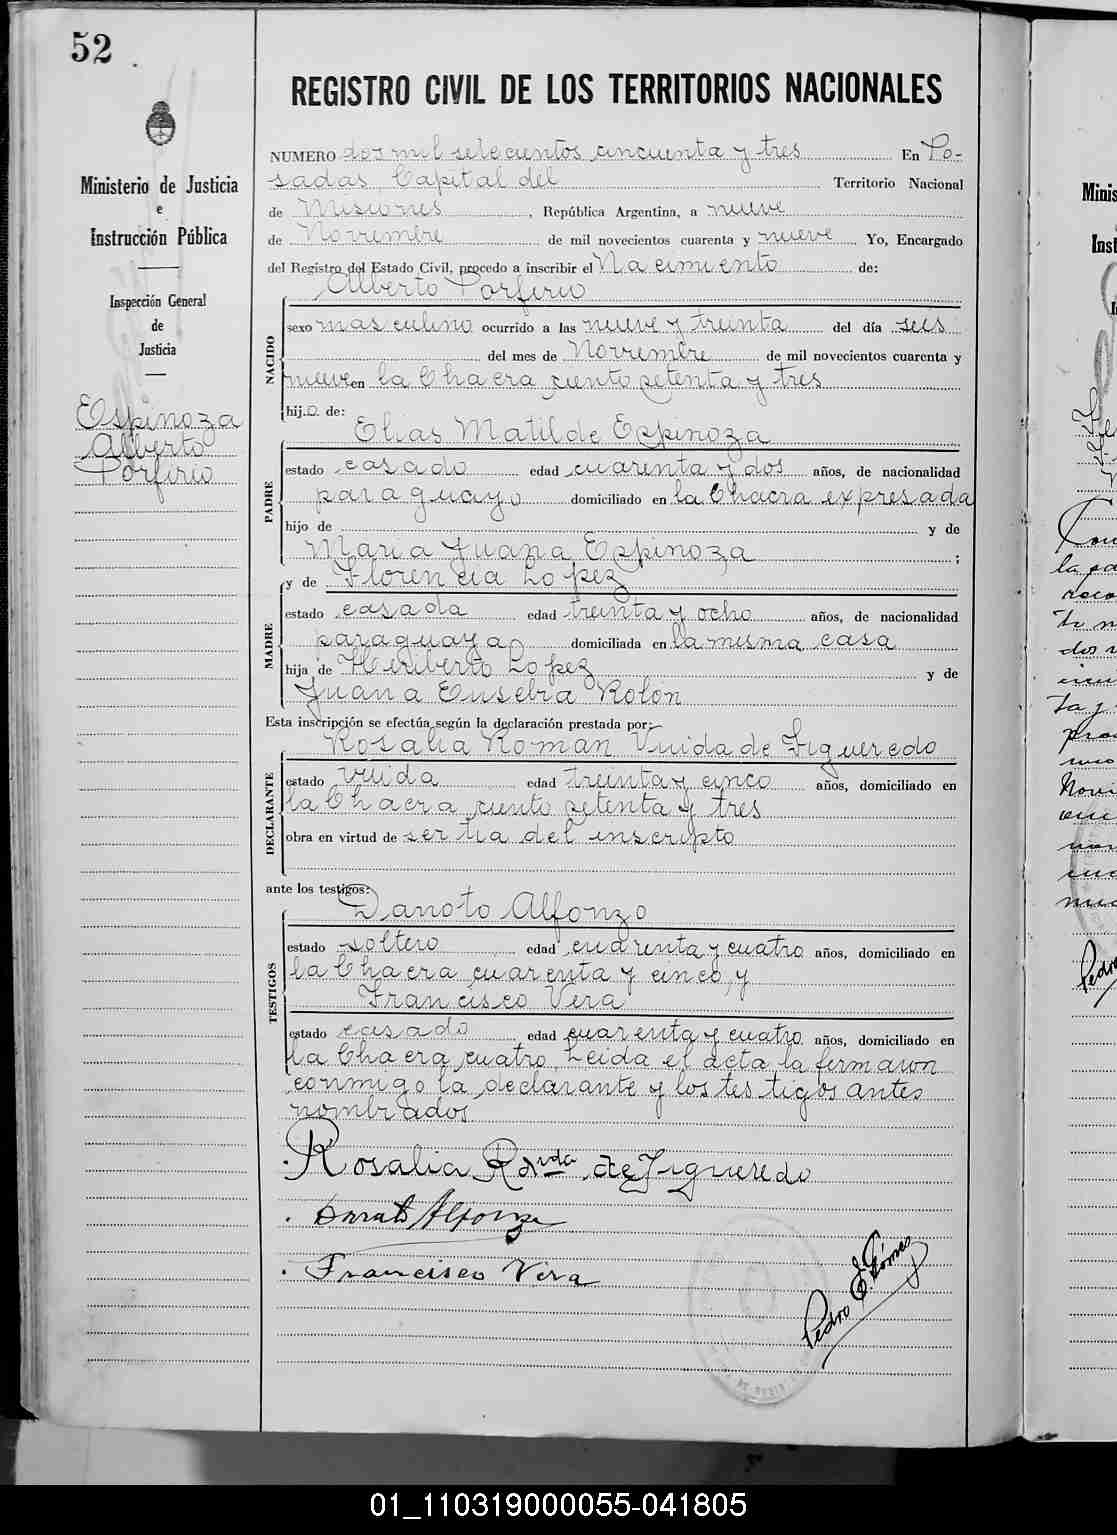 52
Ministerio de Justicia
e
Instrucción Pública
Inspección General
de
Justicia
Espinoza
Alberto
Porfirio
REGISTRO CIVIL DE LOS TERRITORIOS NACIONALES
NUMERO dos mil setecientos cincuenta y tres En Po-
sadas, Capital del Territorio Nacional
de Misiones, República Argentina, a nueve
de Noviembre de mil novecientos cuarenta y nueve Yo, Encargado
del Registro del Estado Civil, procedo a inscribir el Nacimiento de:
Alberto Porfirio
NACIDO
sexo masculino ocurrido a las nueve y treinta del día seis
del mes de Noviembre de mil novecientos cuarenta y
nueve en la Chacra ciento setenta y tres
hijo de:
Elias Matilde Espinoza
PADRE
estado casado edad cuarenta y dos años, de nacionalidad
paraguayo domiciliado en la Chacra expresada
hijo de y de
Maria Juana Espinoza ;
y de Florencia Lopez
MADRE
estado casada edad treinta y ocho años, de nacionalidad
paraguaya domiciliada en la misma casa
hija de Heriberto Lopez y de
Juana Eusebia Rolón
Esta inscripción se efectúa según la declaración prestada por:
Rosalia Roman Viuda de Figueredo
DECLARANTE
estado viuda edad treinta y cinco años, domiciliado en
la Chacra ciento setenta y tres
obra en virtud de ser tia del inscripto
ante los testigos:
Donato Alfonzo
TESTIGOS
estado soltero edad cuarenta y cuatro años, domiciliado en
la Chacra cuarenta y cinco, y
Francisco Vera
estado casado edad cuarenta y cuatro años, domiciliado en
la Chacra cuatro. Leida el acta la firmaron
conmigo la declarante y los testigos antes
nombrados
Rosalia R. vda de Figueredo
Donato Alfonzo
Francisco Vera
Pedro E. Gómez
01_110319000055-041805